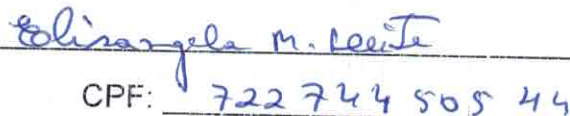 Elisangela M. Leite
CPF: 722 744 505 44